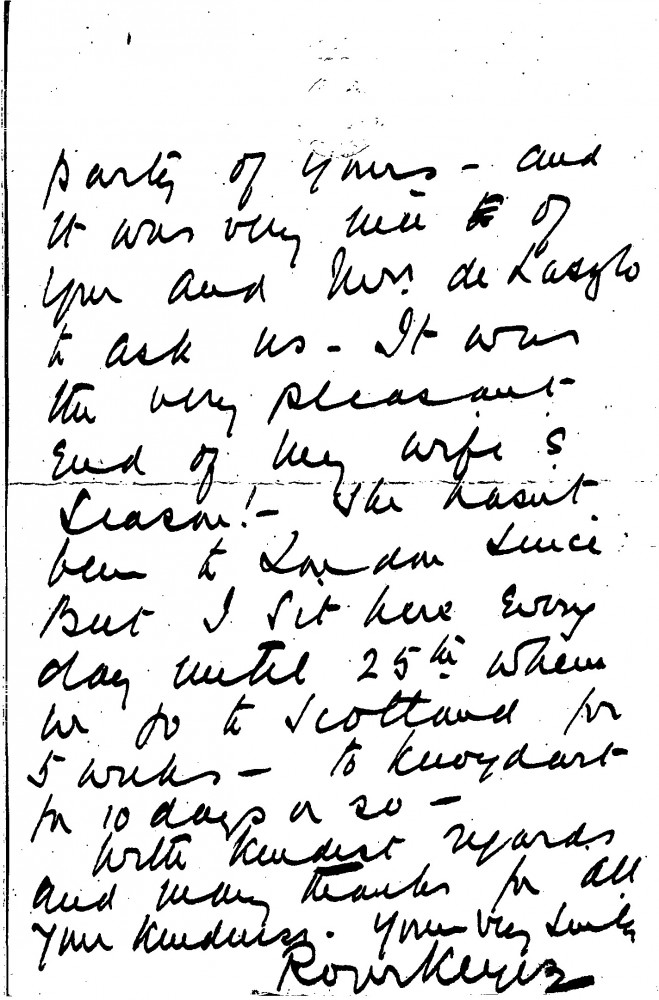 party of yours - and
it was very nice of
you and Mrs. de Laszlo
to ask us - It was
the very pleasant
End of my wife's
Season! - She hasn't
been to London since
But I sit here Every
day until 25th when
we go to Scotland for
5 weeks - to Knoydart
for 10 days or so -
With kindest regards
and many thanks for all
your kindness. Yours very sincerely
Roger Keyes